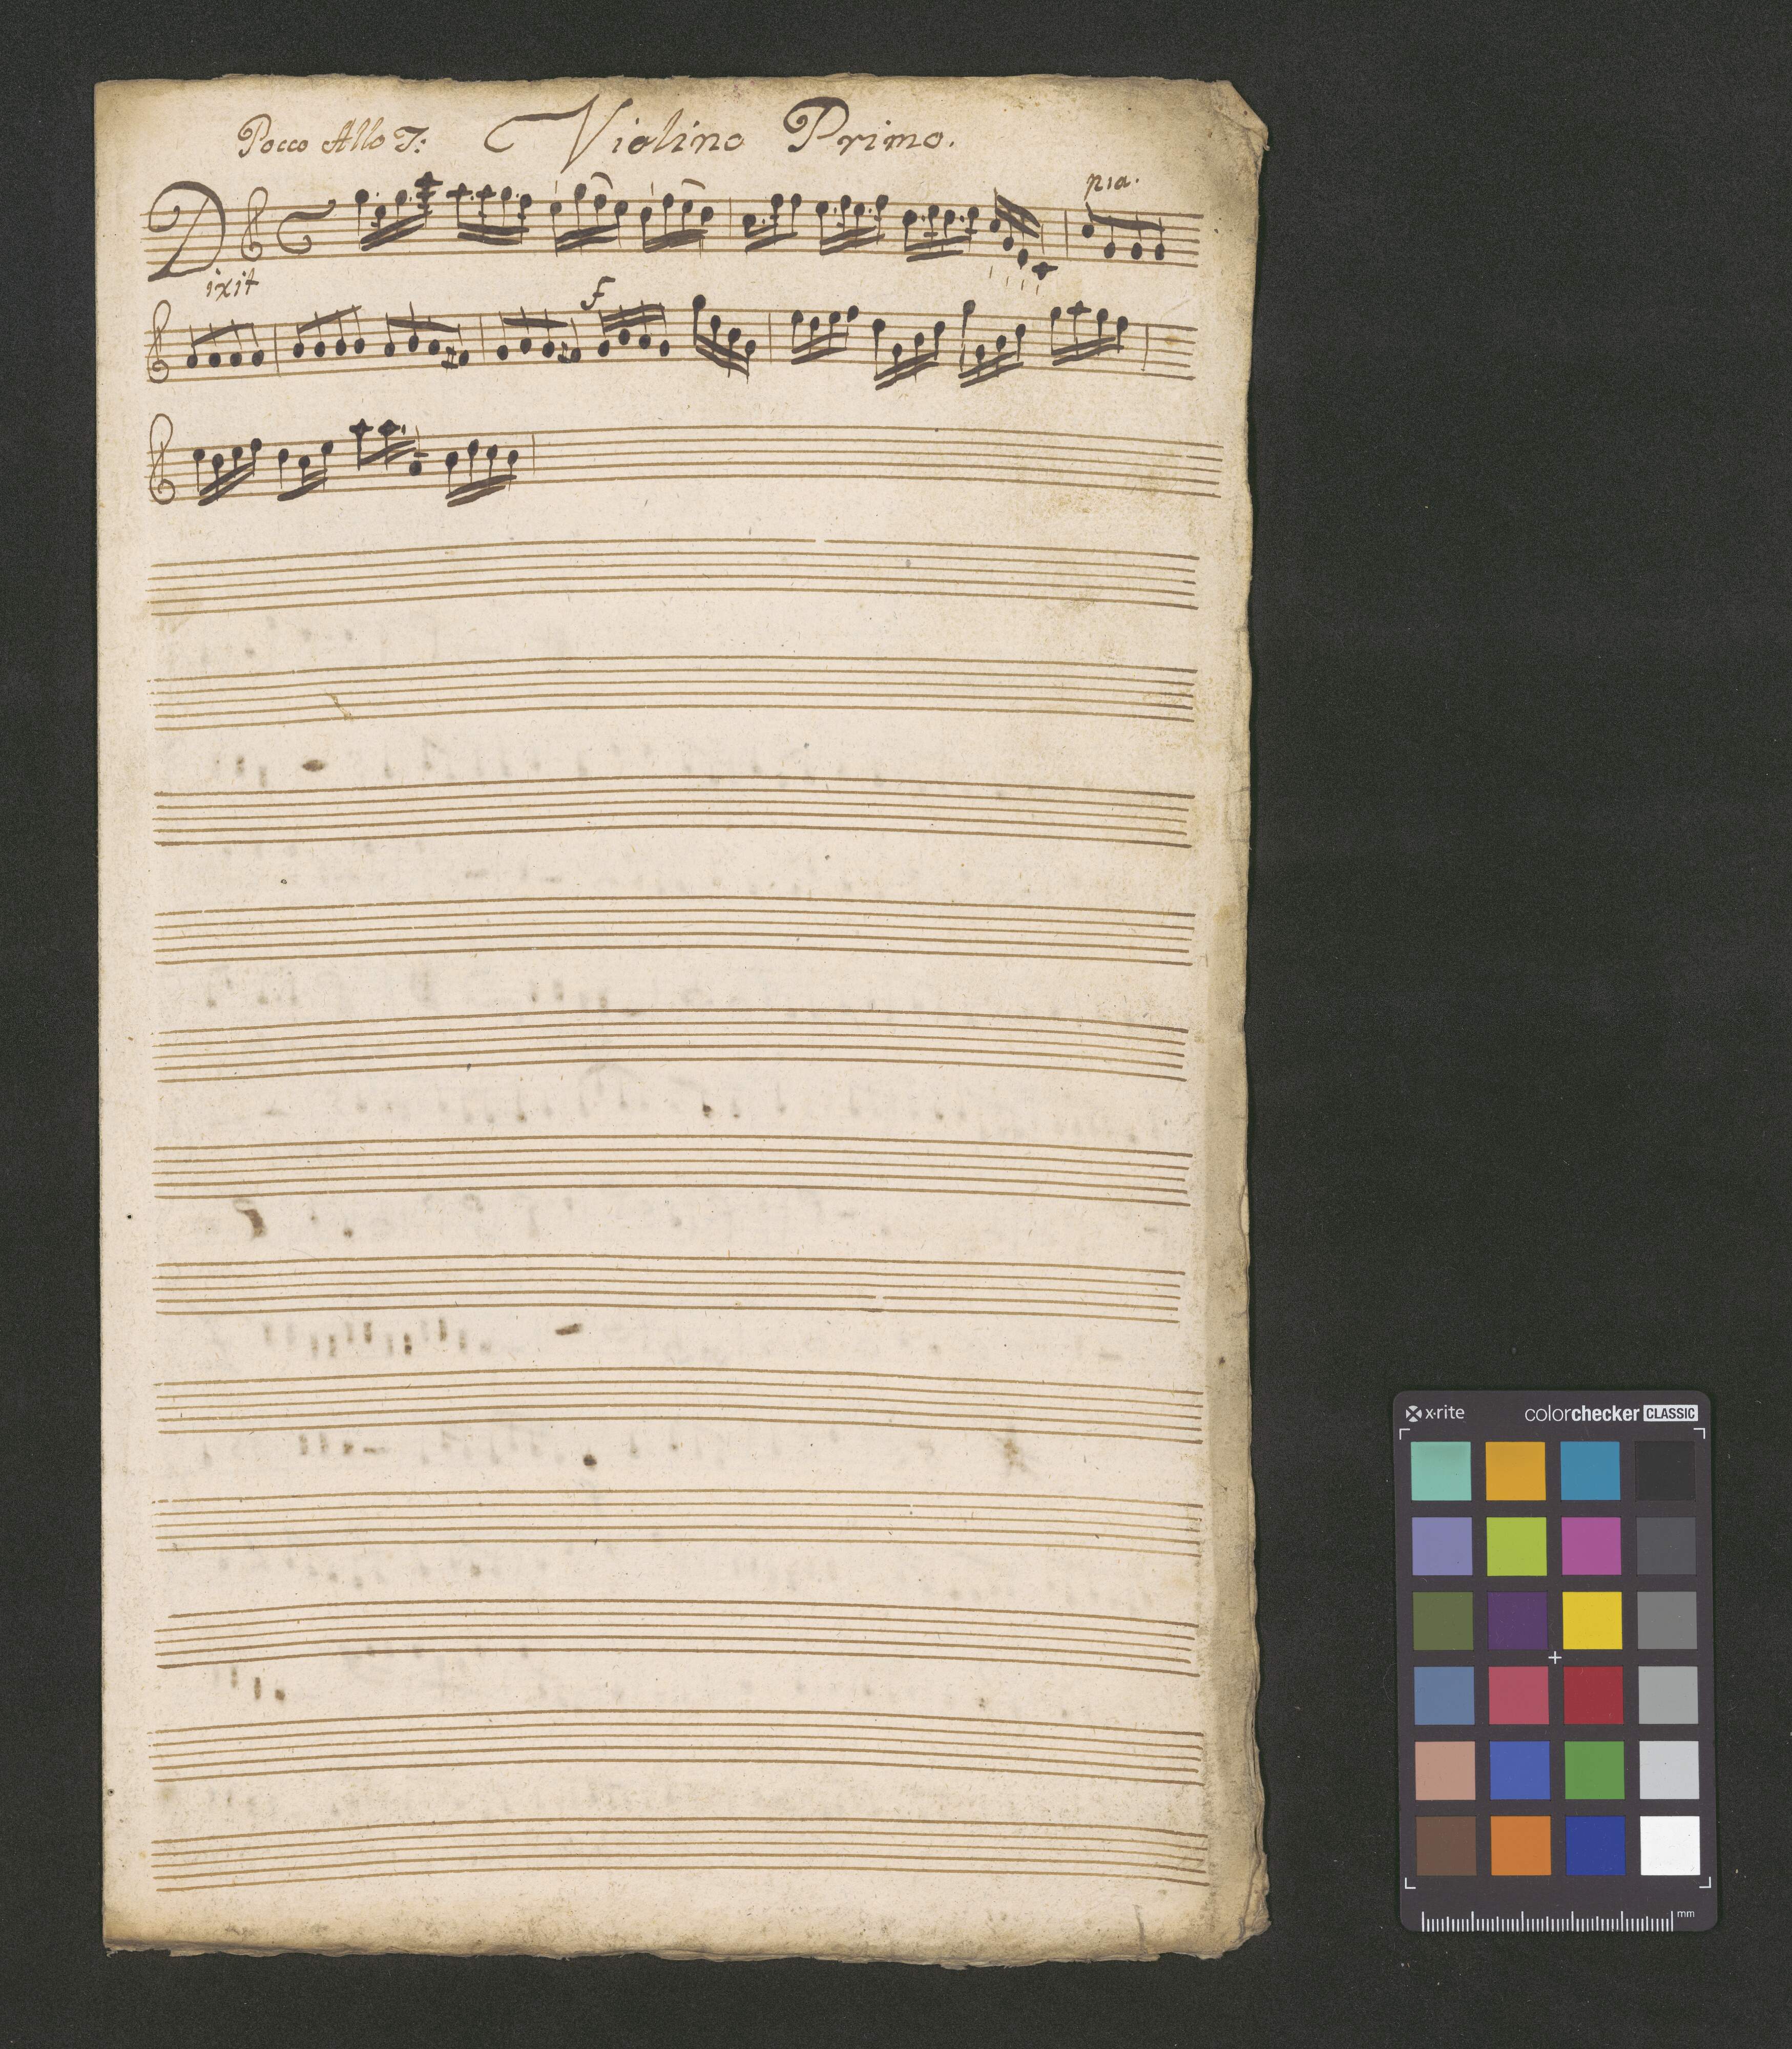 Pocco Allo T: Violino Primo.
pia.
Dixit
f
x·rite colorchecker CLASSIC
mm